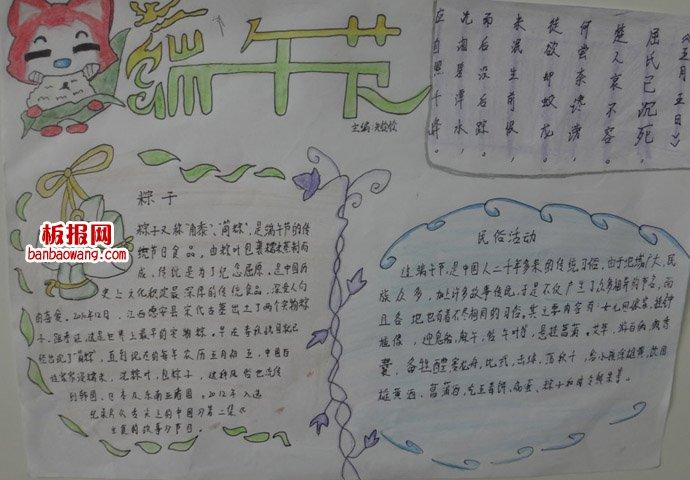 端午节
主编:
《五月五日》
屈氏已沉死，
楚人哀不容。
何尝奈谗谤，
徒欲却蛟龙。
未泯生前恨，
而后没后踪。
沅湘碧潭水，
应自照千峰。
粽子
粽子又称"角黍"、"筒粽"，是端午节的传
统节日食品，由粽叶包裹糯米蒸制而
成，传说是为了纪念屈原，是中国历
史上文化积淀最深厚的传统食品，深受人们
的喜爱。2010年12月，江西德安县宋代古墓出土了两个实物粽
子，据考证，这是世界上最早的实物粽。早在春秋战国就已
经出现了"筒粽"，直到现在的每年农历五月初五，中国百
姓家家浸糯米、洗粽叶、包粽子，这种风俗也流传
到韩国、日本及东南亚诸国。2012年入选
纪录片《舌尖上的中国》第二集《
主食的故事》节目。
板报网
banbaowang.com
民俗活动
过端午节，是中国人二千年多来的传统习俗，由于地域广大，民
族众多，加上许多故事传说，于是不仅产生了众多相异的节名，而
且各地也有着不尽相同的习俗。其主要内容有：女儿回娘家，挂钟
馗像，迎鬼船、躲午，帖午叶符，悬挂菖蒲、艾草，游百病，佩香
囊，备牲醴，赛龙舟，比武，击球，荡秋千，给小孩涂雄黄，饮用
雄黄酒、菖蒲酒，吃五毒饼、咸蛋、粽子和时令鲜果等。